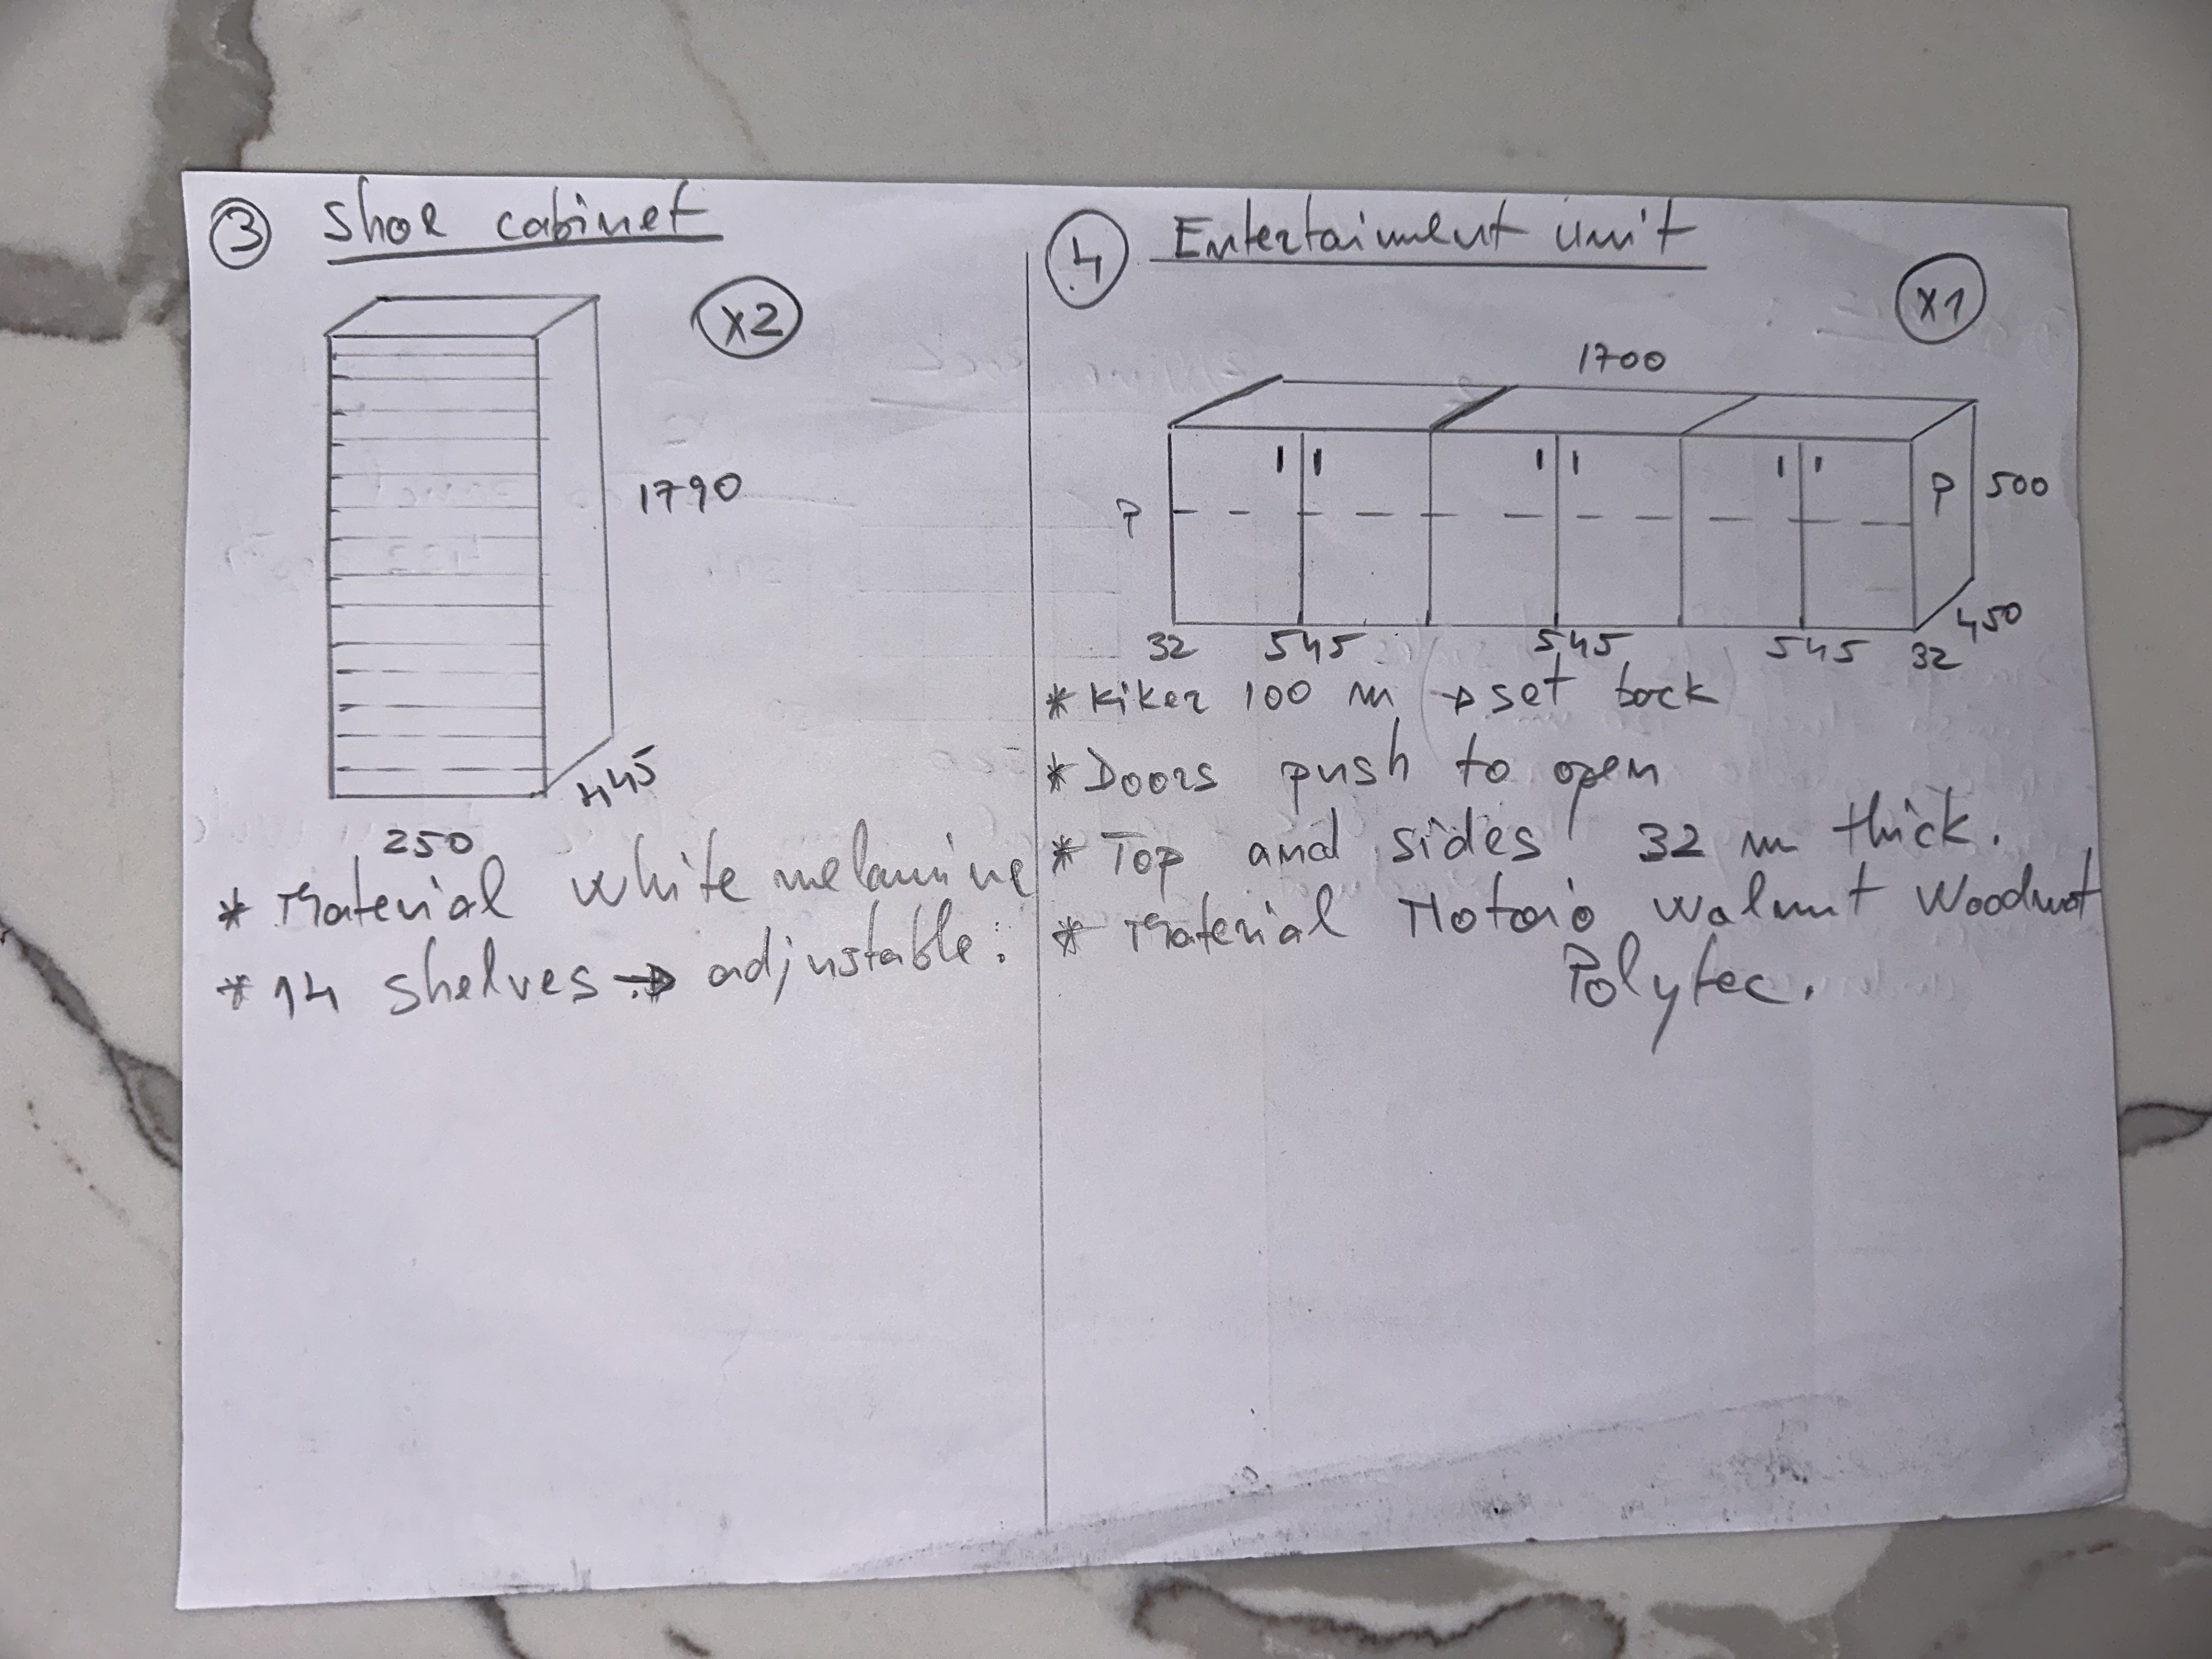 3 Shoe cabinet
x2
1790
445
250
* Material white melamine
* 14 shelves → adjustable.
4 Entertaiment unit
x1
1700
P
P
500
450
32 545 545 545 32
* Kiker 100 m → set back
* Doors push to open
* Top and sides 32 m thick.
* Material Notaio Walnut Woodmat
Polytec.